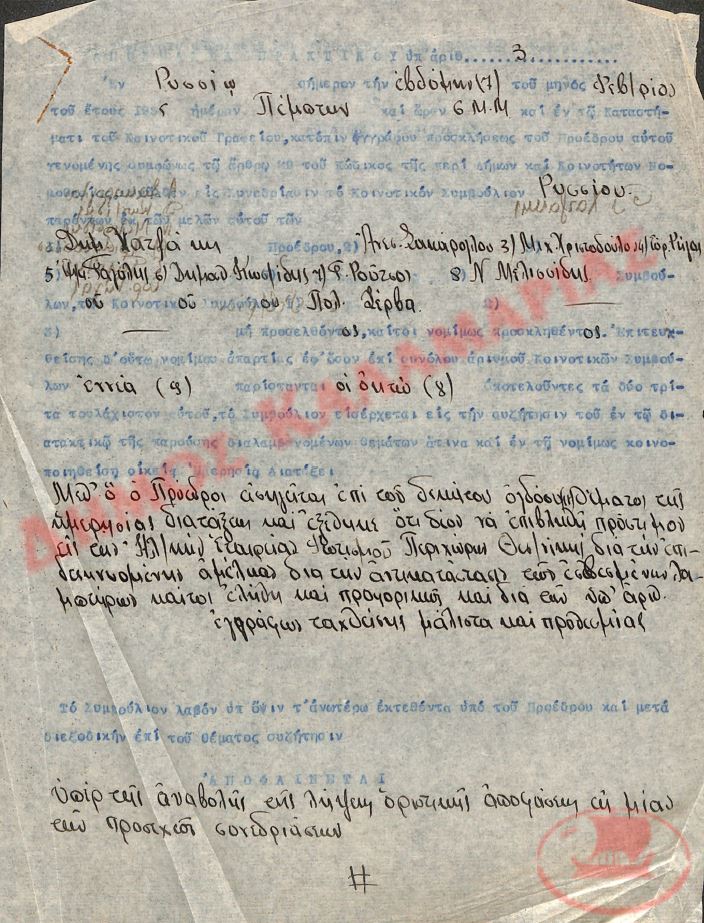 ΠΡΑΚΤΙΚΟΥ ὑπ ἀριθ. 3
Ἐν Ρυσσίῳ σήμερον τήν ἑβδόμην (7) τοῦ μηνός Φεβ/ρίου
τοῦ ἔτους 1935 ἡμέραν Πέμπτην καί ὥραν 6 Μ.Μ καί ἐν τῷ Καταστή-
ματι τοῦ Κοινοτικοῦ Γραφείου, κατόπιν ἐγγράφου προσκλήσεως τοῦ Προέδρου αὐτοῦ
γενομένης συμφώνως τῷ ἄρθρῳ τοῦ κώδικος τῆς περί Δήμων καί Κοινοτήτων Νο-
μοθεσίας εἰς Συνεδρίασιν τό Κοινοτικόν Συμβούλιον Ρυσσίου.
παρόντων ἐκ τῶν μελῶν αὐτοῦ τῶν
1) Δημ. Χατζάκη Προέδρου, 2) 3) Μιχ. Χριστοδούλου 4)
5) 6) 7) 8) Ν Μελισσίδης Συμβού-
λων, τοῦ Κοινοτικοῦ Συμβούλου 1) Πολ. Ζέρβα. 2) —
3) — μή προσελθόντος, καίτοι νομίμως προσκληθέντος. Ἐπιτευχ-
θείσης δ'οὕτω νομίμου ἀπαρτίας ἐφ'ὅσον ἐπί συνόλου ἀριθμοῦ Κοινοτικῶν Συμβού-
λων ἐννέα (9) παρίστανται οἱ ὀκτώ (8) ἀποτελοῦντες τά δύο τρί-
τα τουλάχιστον αὐτοῦ, τό Συμβούλιον εἰσέρχεται εἰς τήν συζήτησιν τοῦ ἐν τῷ δι-
ατακτικῷ τῆς παρούσης διαλαμβανομένων θεμάτων ἅτινα καί ἐν τῇ νομίμως κοινο-
ποιηθείσῃ οἰκείᾳ Ἡμερησίᾳ Διατάξει
Μεθ' ὅ ὁ Πρόεδρος εἰσηγεῖται ἐπί τοῦ δεκάτου ὀγδόου θέματος τῆς
ἡμερησίας διατάξεως καί ἐξέθηκε ὅτι δέον νά ἐπιβληθῇ πρόστιμον
εἰς τήν Ἠλ/κήν Ἑταιρείαν Φωτισμοῦ Περιχώρων Θεσ/νίκης διά τήν ἐπι-
δεικνυομένην ἀμέλειαν διά τήν ἀντικατάστασιν τῶν ἐσβεσμένων λα-
μπτήρων καίτοι ἐλήφθη καί προφορικῶς καί διά τοῦ ὑπ' ἀριθ.
ἐγγράφως ταχθείσης μάλιστα καί προθεσμίας
Τό Συμβούλιον λαβόν ὑπ ὄψιν τ'ἀνωτέρω ἐκτεθέντα ὑπό τοῦ Προέδρου καί μετά
διεξοδικήν ἐπί τοῦ θέματος συζήτησιν
ΑΠΟΦΑΙΝΕΤΑΙ
ὑπέρ τῆς ἀναβολῆς τῆς λήψεως ὁριστικῆς ἀποφάσεως εἰς μίαν
τῶν προσεχῶν συνεδριάσεων
ΔΗΜΟΣ ΚΑΛΑΜΑΡΙΑΣ